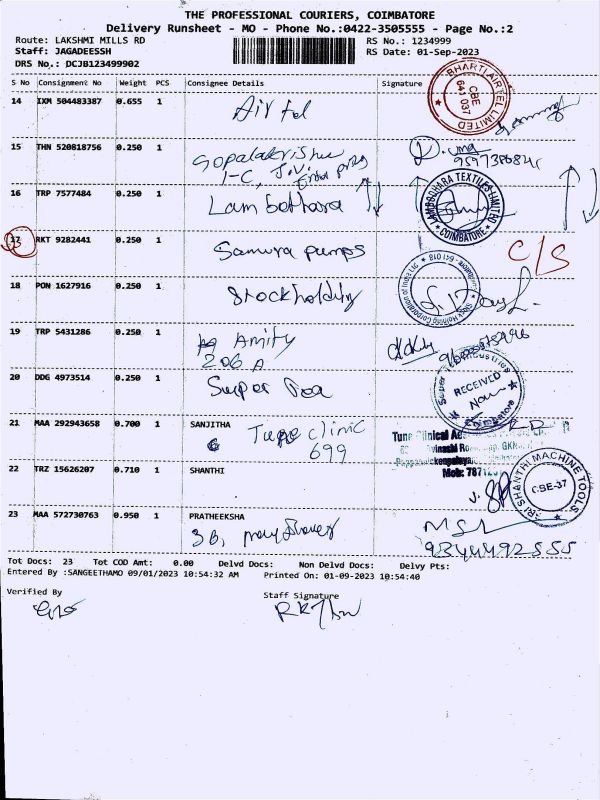 THE PROFESSIONAL COURIERS, COIMBATORE
Delivery Runsheet - MO - Phone No.:0422-3505555 - Page No.:2
Route: LAKSHMI MILLS RD RS No.: 1234999
Staff: JAGADEESSH RS Date: 01-Sep-2023
DRS No.: DCJB123499902
S No Consignment No Weight PCS Consignee Details Signature
14 IXM 504483387 0.655 1 Airtel
BHARTI AIRTEL LIMITED CBE 641 037
15 THN 520818756 0.250 1 Gopalakrishna
1-C, J.V.
16 TRP 7577484 0.250 1 Lambothara
LAMBODHARA TEXTILES LIMITED COIMBATORE
17 RKT 9282441 0.250 1 Samura pumps C/S
18 PON 1627916 0.250 1 Stockholding
Stock Holding Corporation of India Ltd Coimbatore - 641 018
19 TRP 5431286 0.250 1 Amity
206 A
20 DDG 4973514 0.250 1 Super Tea
RECEIVED
Coimbatore
21 MAA 292943658 0.700 1 SANJITHA
Tune clinic
699
Tune Clinical
Avinashi
Mob: 7871
22 TRZ 15626207 0.710 1 SHANTHI
SRI SHANTHI MACHINE TOOLS CBE-37
23 MAA 572730763 0.950 1 PRATHEEKSHA
3B, MSL
9344492555
Tot Docs: 23 Tot COD Amt: 0.00 Delvd Docs: Non Delvd Docs: Delvy Pts:
Entered By :SANGEETHAMO 09/01/2023 10:54:32 AM Printed On: 01-09-2023 10:54:40
Verified By Staff Signature